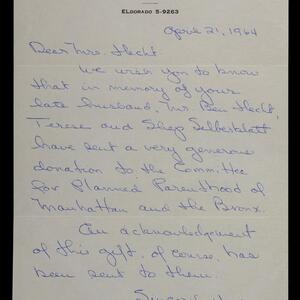 ELDORADO 5-9263
April 21, 1964
Dear Mrs. Hecht:
We wish you to know
that in memory of your
late husband, Mr. Ben Hecht,
Terese and Shep Silberblatt
have sent a very generous
donation to the Committee
for Planned Parenthood of
Manhattan and the Bronx.
An acknowledgement
of this gift, of course, has
been sent to them.